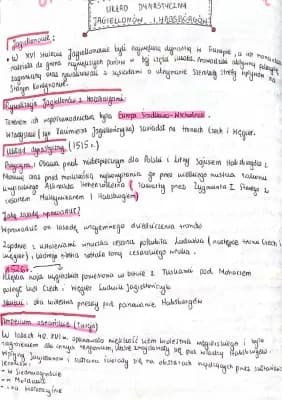 UKŁAD DYNASTYCZNY
JAGIELLONÓW I HABSBURGÓW
Jagiellonowie:
• W XVI stuleciu Jagiellonowie byli największą dynastią w Europie, a ich monarchia
należała do grona największych państw w tej części świata. Prowadzili aktywną politykę
zagraniczną oraz rywalizowali z sąsiadami o utrzymanie szerokiej strefy wpływów na
Starym Kontynencie.
Rywalizacja Jagiellonów z Habsburgami:
Terenem ich współzawodnictwa była Europa Środkowo-Wschodnia.
Władysław (syn Kazimierza Jagiellończyka) zasiadał na tronach Czech i Węgier.
Układ dynastyczny (1515 r.)
Przyczyny: Obawa przed niebezpiecznym dla Polski i Litwy sojuszem Habsburgów z
Moskwą oraz przed możliwością wykorzystania go przez wielkiego mistrza zakonu
krzyżackiego Albrechta Hohenzollerna (zawarty przez Zygmunta I Starego z
cesarzem Maksymilianem I Habsburgiem)
Jaką zasadę wprowadził?
Wprowadził on zasadę wzajemnego dziedziczenia tronów
Zgodnie z ustaleniami wnuczka cesarza poślubiła Ludwika (następcę tronu Czech i
Węgier), którego siostra została żoną cesarskiego wnuka.
1526 r.
Klęska wojsk węgierskich poniesiona w bitwie z Turkami pod Mohaczem
poległ król Czech i Węgier Ludwik Jagiellończyk
Skutki: oba królestwa przeszły pod panowanie Habsburgów
Imperium osmańskie (Turcja)
W latach 40. XVI w. opanowało większość ziem królestwa węgierskiego i było
zagrożeniem dla innych
Wpływy Jagiellonów i sułtana ścierały się na obszarach
- w Siedmiogrodzie
- w Mołdawii
- na Wołoszczyźnie